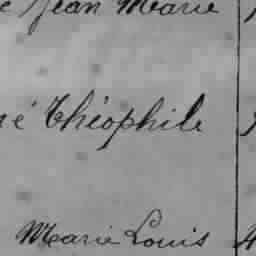 Jean Marie
Théophile
Marie Louis